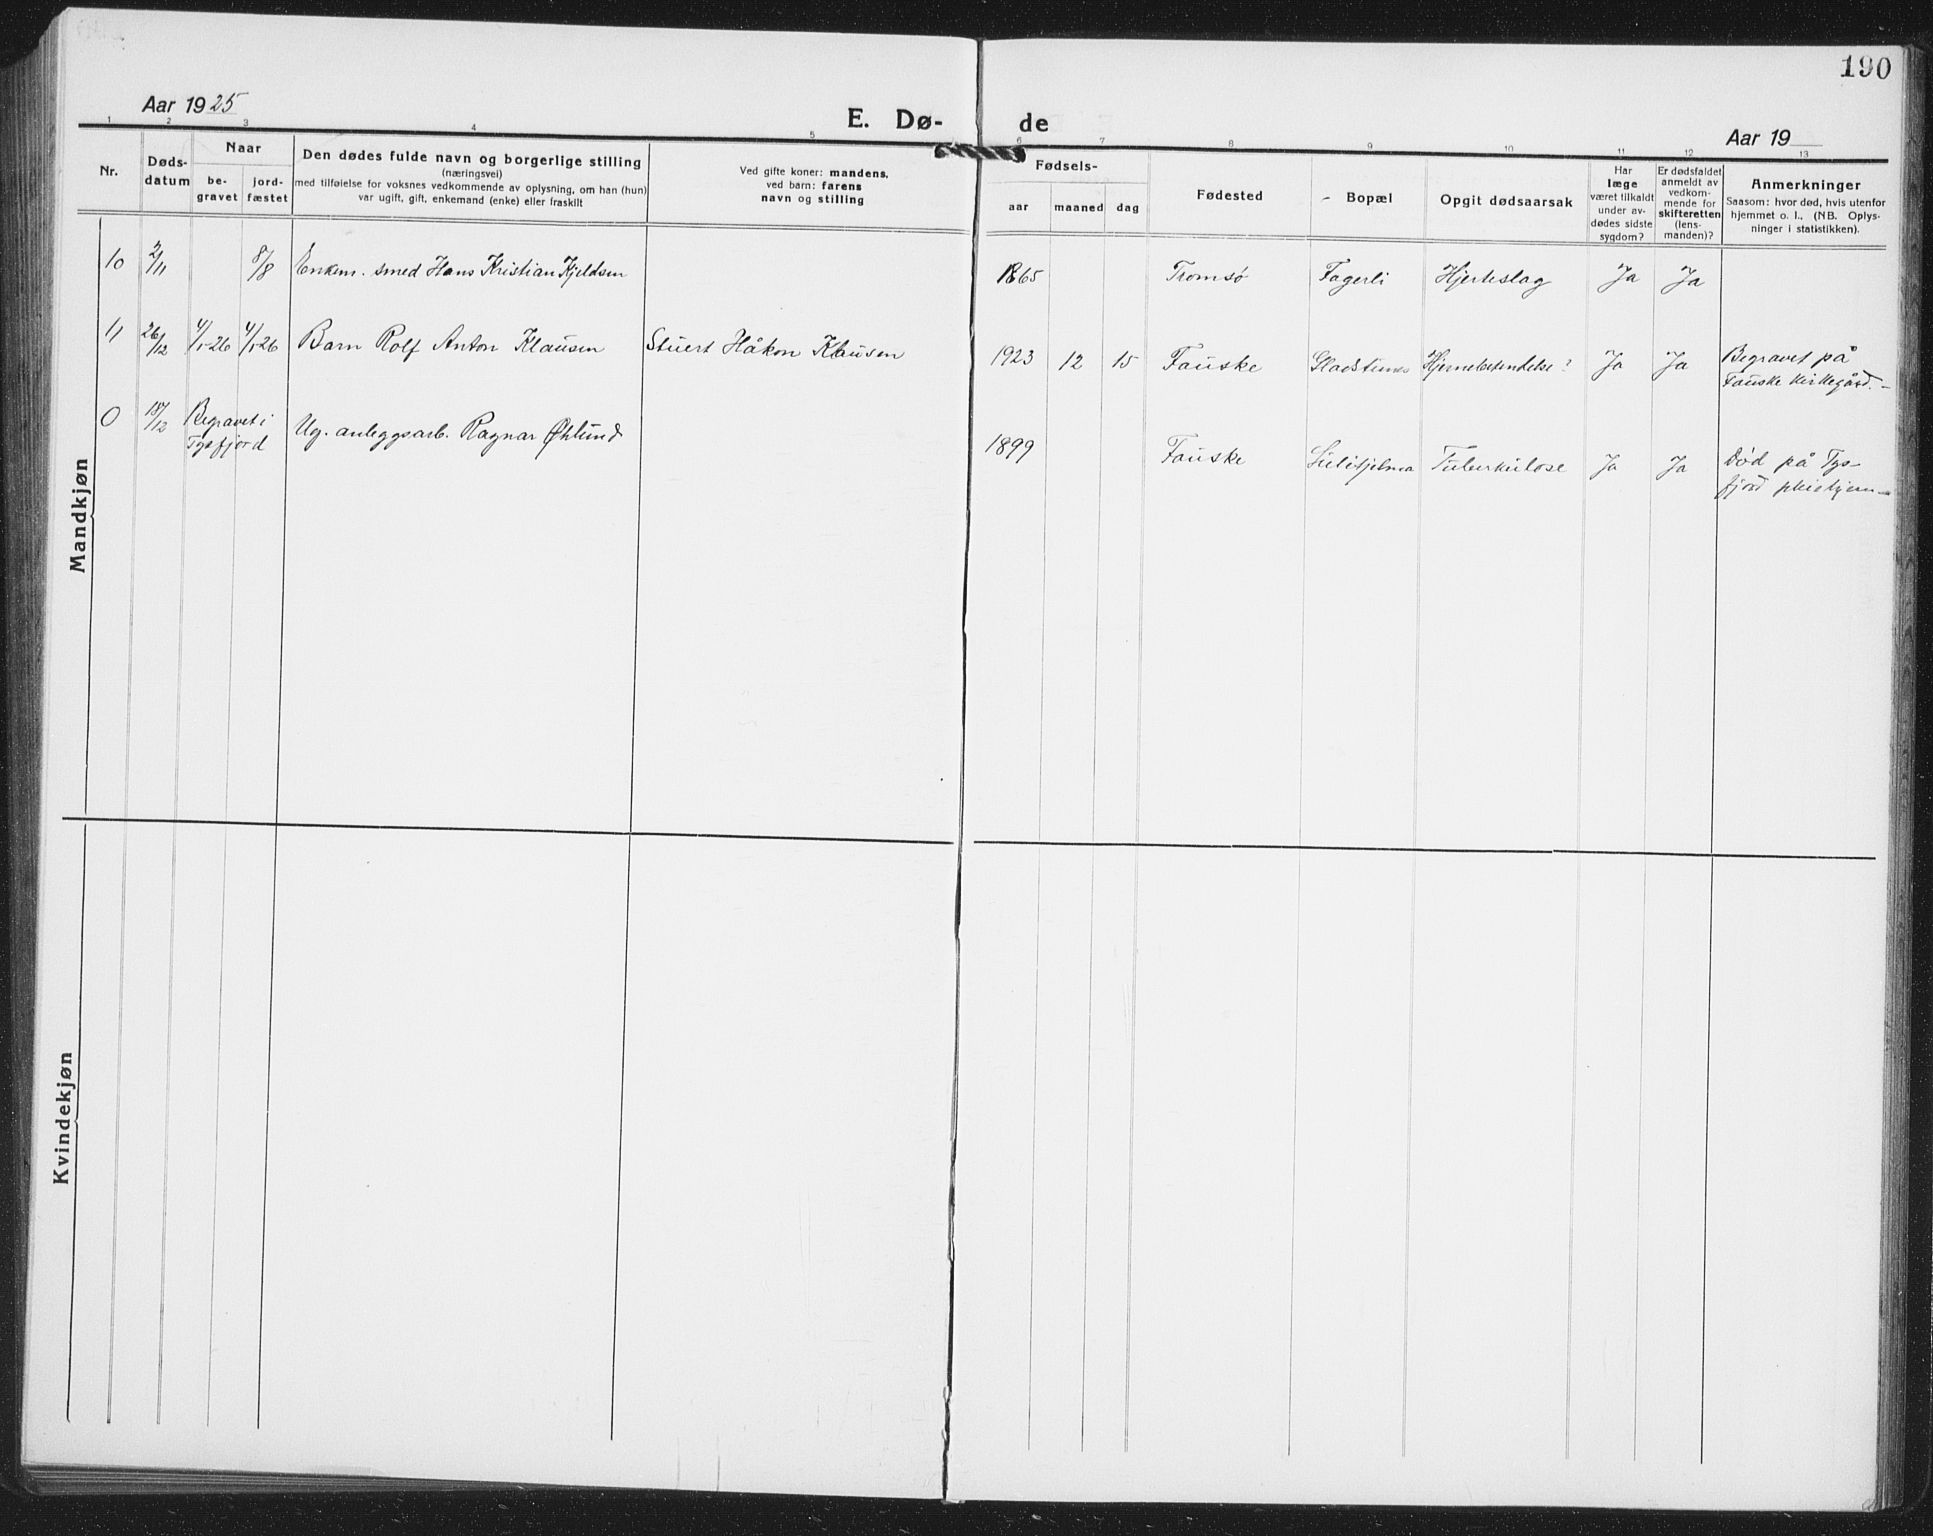 190
Aar 1925
E. Dø-
de
Aar 19
1 2 3 4 5 6 7 8 9 10 11 12 13
Nr.
Døds-
datum
Naar
be-
gravet
jord-
fæstet
Den dødes fulde navn og borgerlige stilling
(næringsvei)
med tilføielse for voksnes vedkommende av oplysning, om han (hun)
var ugift, gift, enkemand (enke) eller fraskilt
Ved gifte koner: mandens,
ved barn: farens
navn og stilling
Fødsels-
aar maaned dag
Fødested
Bopæl
Opgit dødsaarsak
Har
læge
været tilkaldt
under av-
dødes sidste
sygdom?
Er dødsfaldet
anmeldt av
vedkom-
mende for
skifteretten
(lens-
manden)?
Anmerkninger
Saasom: hvor død, hvis utenfor
hjemmet o. l., (NB. Oplys-
ninger i statistikken).
Mandkjøn
10 2/11 8/8 Enkem. smed Hans Kristian Kjeldsen 1865 Tromsø Fagerli Hjerteslag Ja Ja
11 26/12 4/1-26 4/1-26 Barn Rolf Anton Klausen Stuert Håkon Klausen 1923 12 15 Fauske Hjernebetendelse? Ja Ja Begravet på
Fauske kirkegård.-
0 /12 Begravet i
Tysfjord
Ug. anleggsarb. Ragnar Øhlund 1899 Fauske Sulitjelma Tuberkulose Ja Ja Død på Tys-
fjord pleiehjem
Kvindekjøn